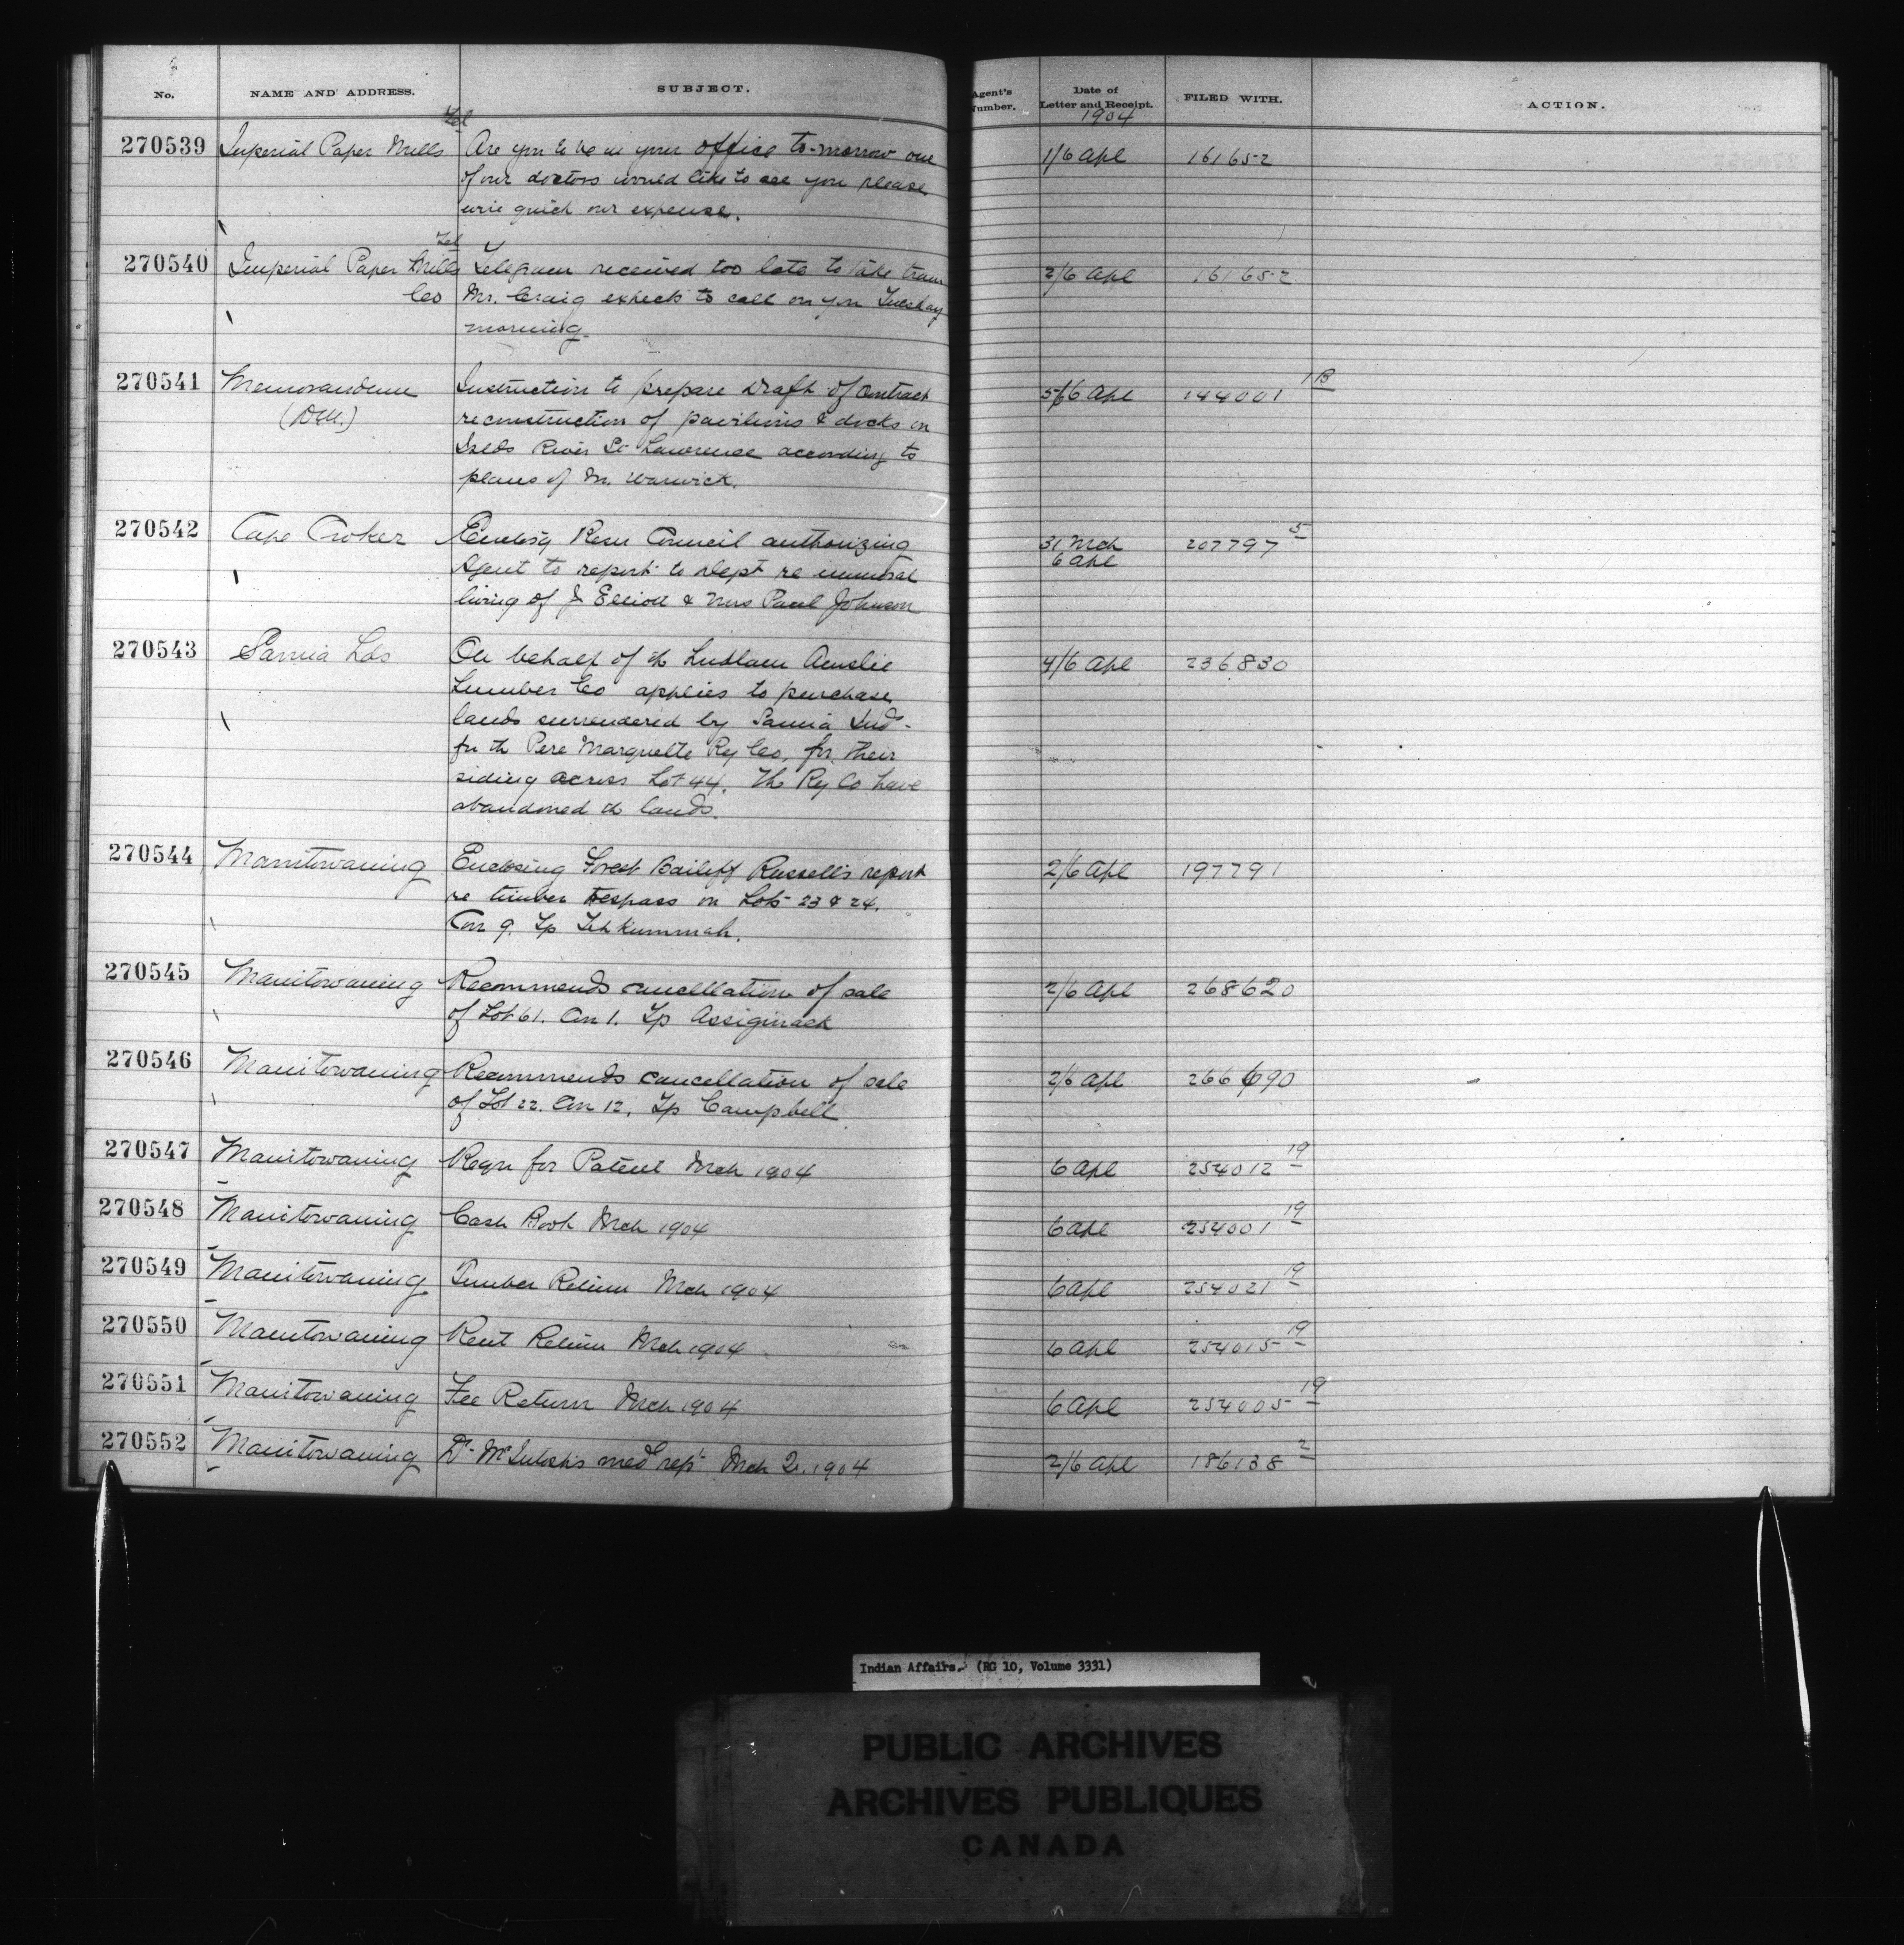 No. NAME AND ADDRESS. SUBJECT. Agent's Number. Date of Letter and Receipt. FILED WITH. ACTION.
1904
Tel
270539 Imperial Paper Mills Are you to be in your office to-morrow one 1/6 Apl 161652
of our doctors would like to see you please
wire quick our expense.
Tel
270540 Imperial Paper Mills Telegram received too late to take train 2/6 Apl 161652
Co Mr. Craig expects to call on you Tuesday
morning.
270541 Memorandum Instruction to prepare draft of contract 5/6 Apl 144001 1B
(DM.) reconstruction of pavilions & docks on
Islds River St Lawrence according to
plans of Mr. Warwick.
270542 Cape Croker Enclosg Resn Council authorizing 31 Mch 207797 5
6 Apl
Agent to report to Dept re immoral
living of J Elliott & Mrs Paul Johnson
270543 Sarnia Lds On behalf of th Ludlam Ainslie 4/6 Apl 236830
Lumber Co applies to purchase
lands surrendered by Sarnia Inds.
for th Pere Marquette Ry Co, for their
siding across Lot 44. Th Ry Co have
abandoned th lands.
270544 Manitowaning Enclosing Forest Bailiff Russell's report 2/6 Apl 197791
re timber trespass on Lots 23 & 24.
Con 9. Tp Tehkummah.
270545 Manitowaning Recommends cancellation of sale 2/6 Apl 268620
of Lot 61. Con 1. Tp Assiginack
270546 Manitowaning Recommends cancellation of sale 2/6 Apl 266690
of Lot 22. Con 12, Tp Campbell
270547 Manitowaning Reqn for Patent Mch 1904 6 Apl 254012 19
270548 Manitowaning Cash Book Mch 1904 6 Apl 254001 19
270549 Manitowaning Timber Return Mch 1904 6 Apl 254021 19
270550 Manitowaning Rent Return Mch 1904 6 Apl 254015 19
270551 Manitowaning Fee Return Mch 1904 6 Apl 254005 19
270552 Manitowaning Dr McIntosh's med rept Mch 1904 2/6 Apl 186138 2
Indian Affairs. (RG 10, Volume 3331)
PUBLIC ARCHIVES
ARCHIVES PUBLIQUES
CANADA